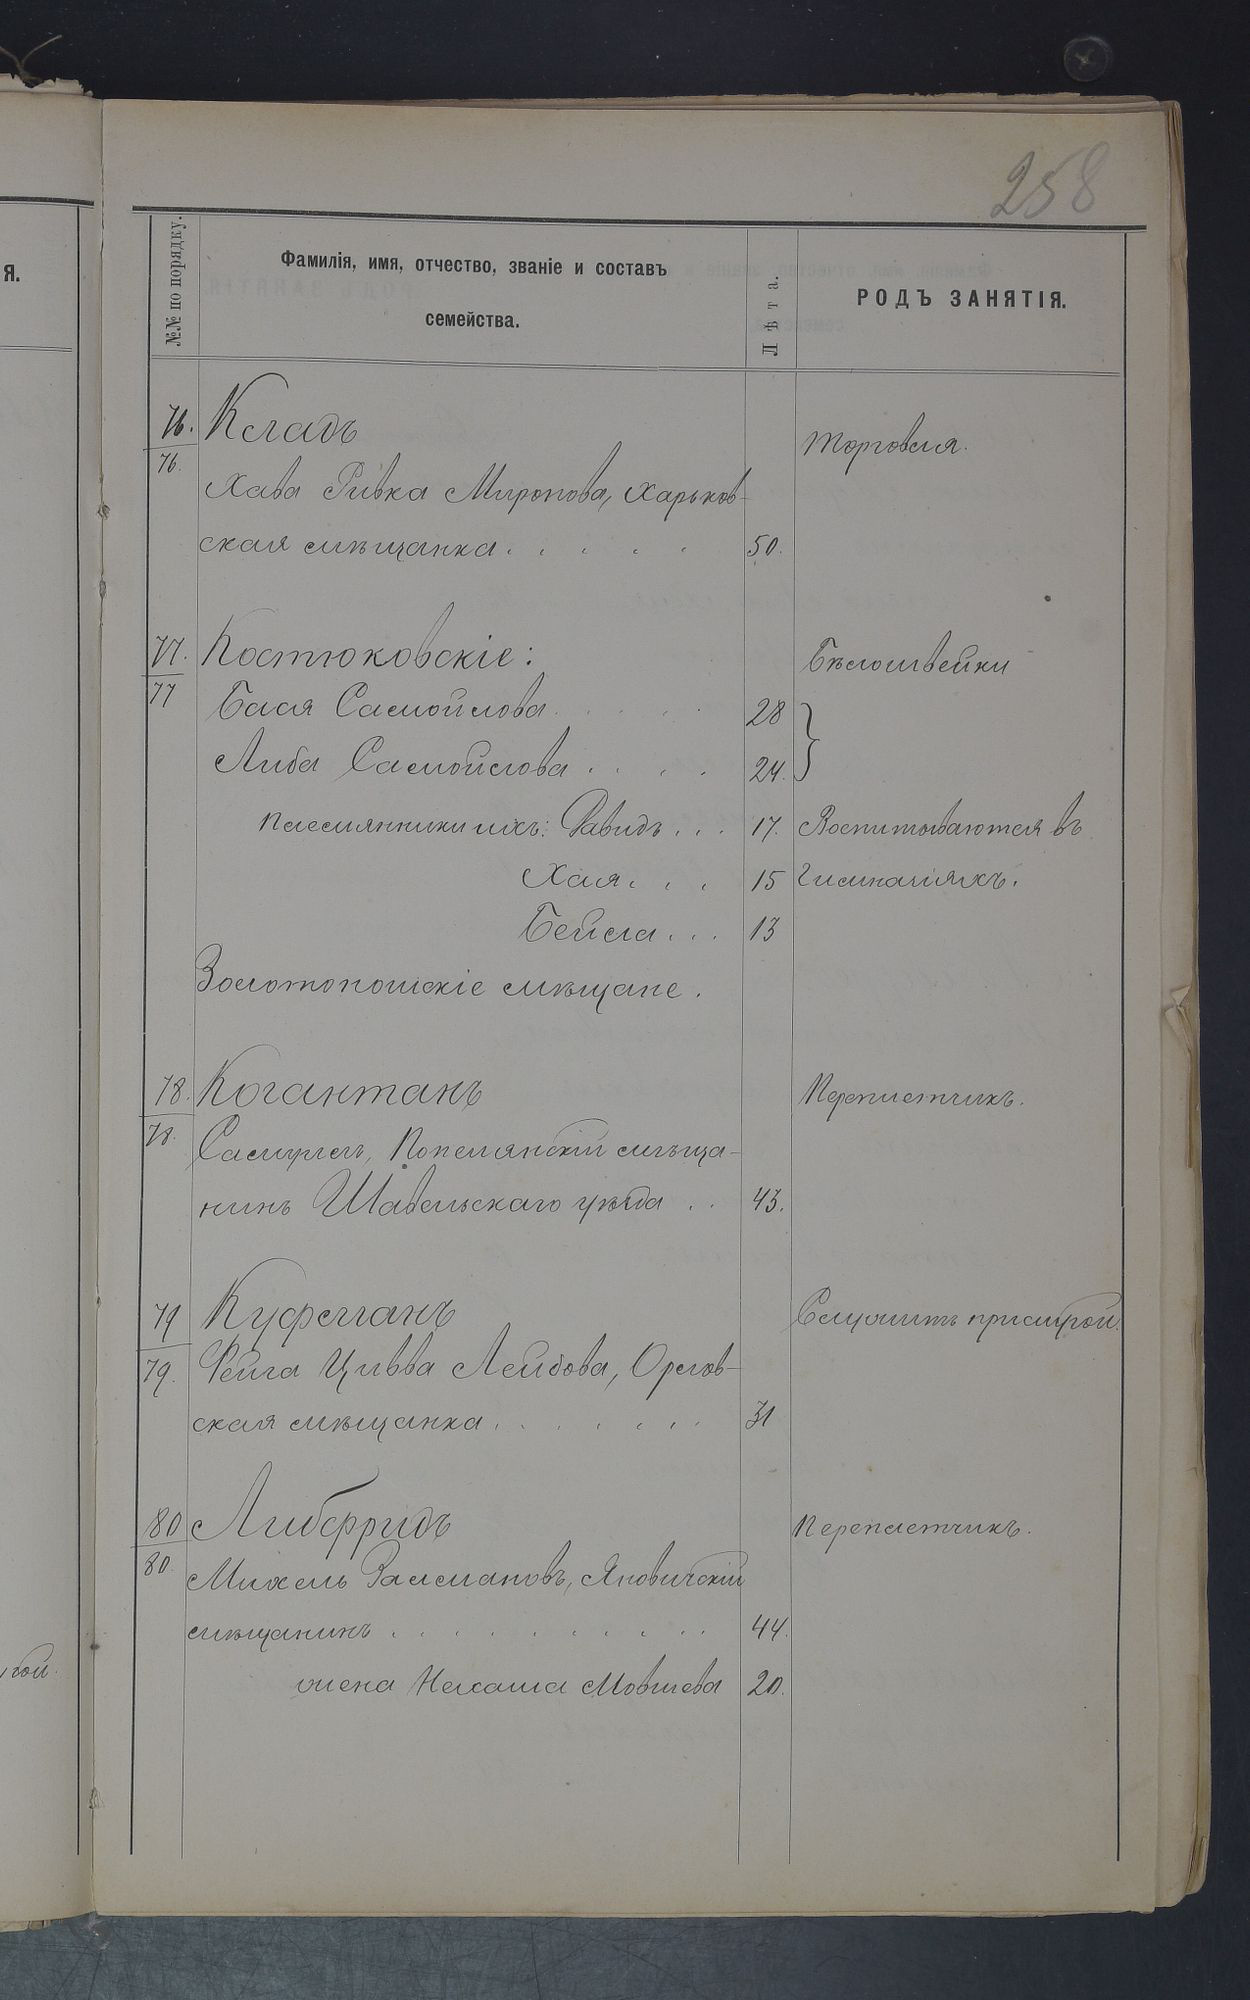 258
Я.
№№ по порядку.
Фамилія, имя, отчество, званіе и составъ
семейства.
Лѣта.
РОДЪ ЗАНЯТІЯ.
76. Кладъ
Торговля.
76.
Хава Ривка Миронова, Харьков-
ская мѣщанка . . . . . 50.
77. Костюковскіе:
Бѣлошвейки
77
Бася Самойлова . . . . . 28
Либа Самойлова . . . . 24.
племянники ихъ: Давидъ . . . 17. Воспитываются въ
Хая . . . 15 гимназіяхъ.
Бейла . . . 13
Золотоношскіе мѣщане.
78. Когантанъ
Переплетчикъ.
78.
Самуилъ, Попелянскій мѣща-
нинъ Шавельскаго уѣзда . . 43.
79 Куферманъ
Служитъ прислугой.
79.
Фейга Цивва Лейбова, Орлов-
ская мѣщанка . . . . . . . 31
80 Либфридъ
Переплетчикъ.
80.
Михель Залмановъ, Яновичскій
мѣщанинъ . . . . . . . . . . 44.
жена Нехама Мовшева 20.